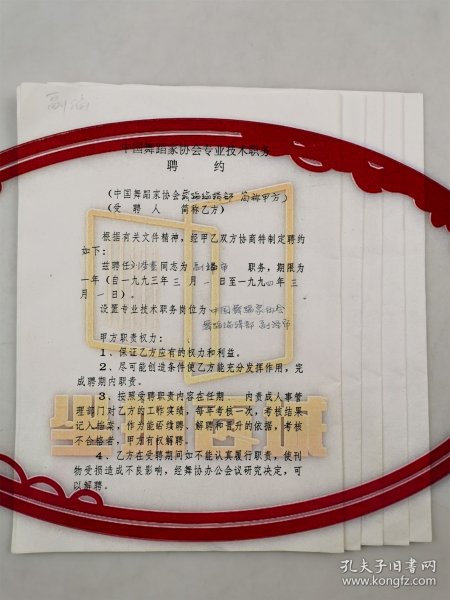 副编
中国舞蹈家协会专业技术职务
聘 约
(中国舞蹈家协会舞蹈编辑部 简称甲方)
(受 聘 人 简称乙方)
根据有关文件精神，经甲乙双方协商特制定聘约
如下：
兹聘任 同志为副编审 职务，期限为
一年（自一九九三年三月一日至一九九四年三
月一日）。
设置专业技术职务岗位为中国舞蹈家协会
舞蹈编辑部副编审
甲方职责权力：
1、保证乙方应有的权力和利益。
2、尽可能创造条件使乙方能充分发挥作用，完
成聘期内职责。
3、按照受聘职责内容在任期 内责成人事管
理部门对乙方的工作实绩，每年考核一次，考核结果
记入档案，作为能否续聘、解聘和晋升的依据，考核
不合格者，甲方有权解聘。
4、乙方在受聘期间如不能认真履行职责，使刊
物受损造成不良影响，经舞协办公会议研究决定，可
以解聘。
孔夫子旧书网
www.kongfz.com